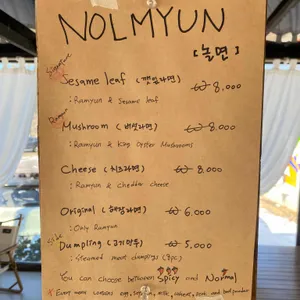 NOLMYUN
[놀면]
Signature
Sesame leaf (깻잎라면) ₩ 8,000
: Ramyun & Sesame leaf
Mushroom (버섯라면) ₩ 8,000
: Ramyun & King Oyster Mushrooms
Cheese (치즈라면) ₩ 8,000
: Ramyun & Cheddar cheese
Original (해장라면) ₩ 6,000
: Only Ramyun
Side
Dumpling (고기만두) ₩ 5,000
: Steamed meat dumplings
You can choose between Spicy and Normal
* Every menu contains egg, milk, wheat, and